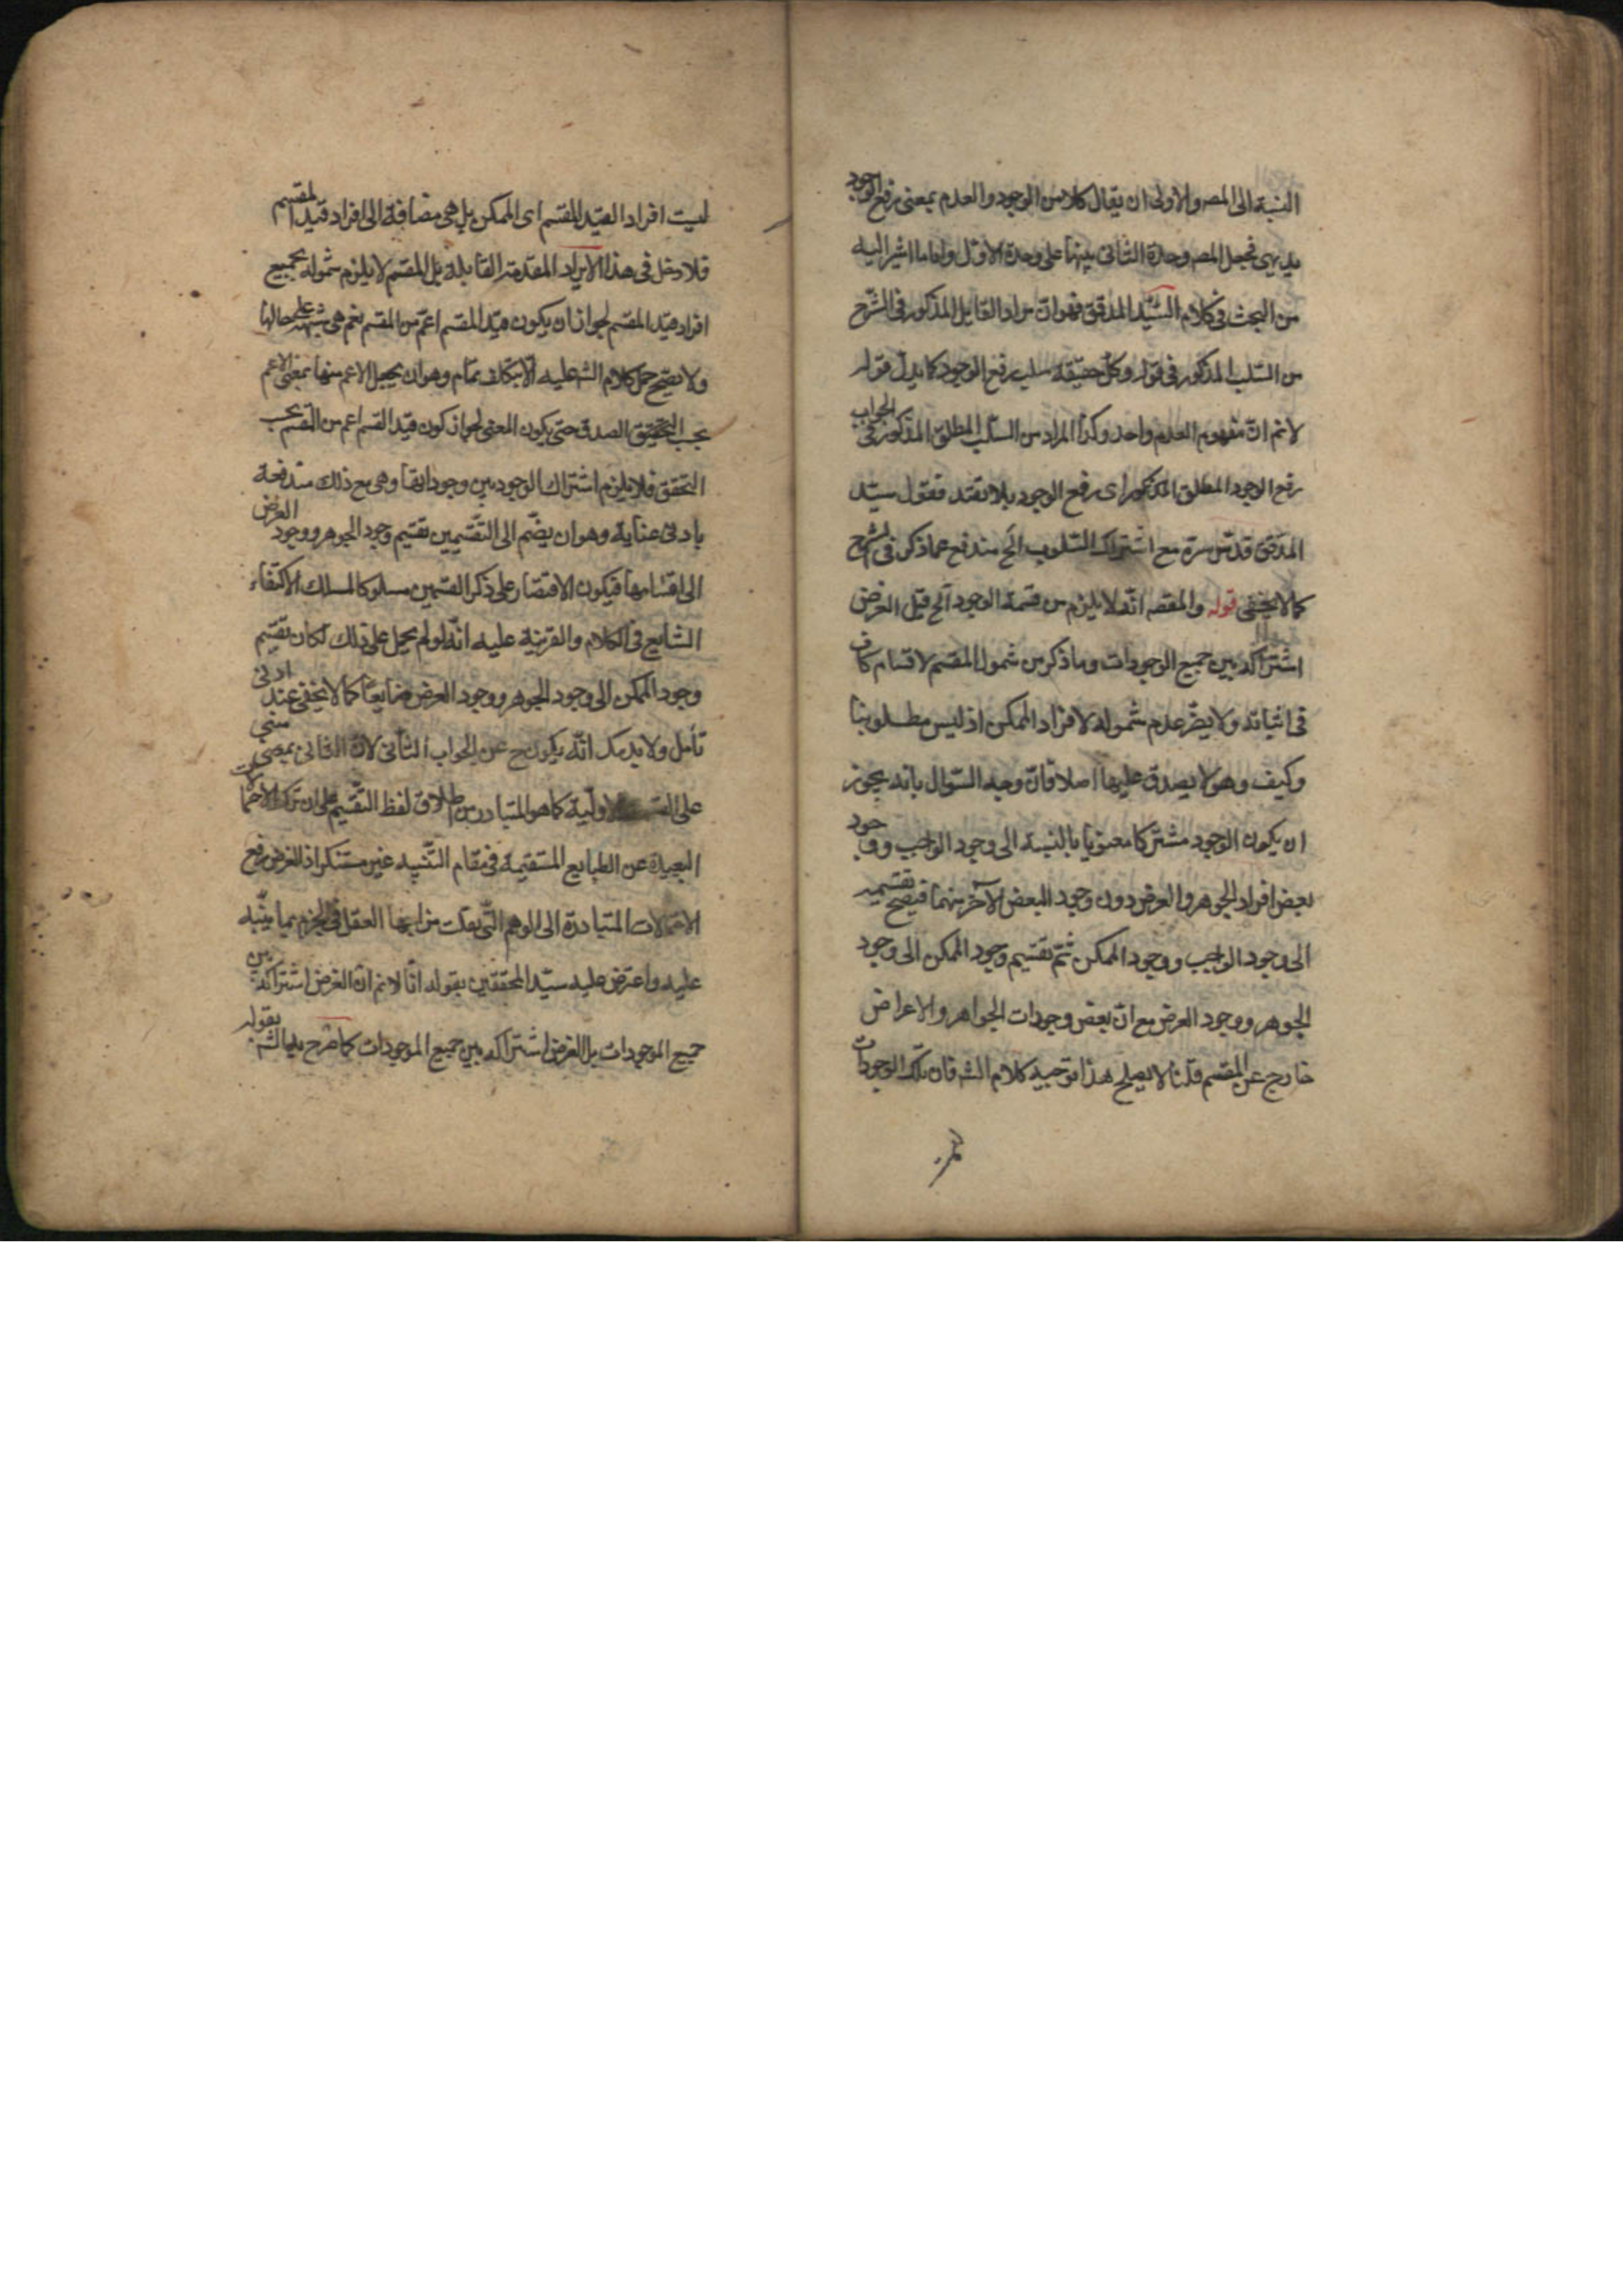 النسبة الى المصـ والاولى ان يقال كلا من الوجود والعدم بمعنى رفع الوجود
بديهى فجعل المصـ وحدة الثانى بينها على وحدة الاول واما ما اشير اليه
من البحث فى كلام السيّد المدقق فهو انّ مراد القايل المذكور فى الشرح
من السّلب المذكور فى قوله وكل حقيقة سلب رفع الوجود كما يدل قوله
لانم انّ مفهوم العدم واحد وكذا المراد من السّلب المطلق المذكور فى الجواب
رفع الوجود المطلق المذكور اى رفع الوجود بلا تقيّد فقول سيّد
المدقق قدّس سره مع اشتراك السّلوب الخ مندفع عما ذكر فى الشرح
كما لا يخفى قوله والمقصـ انّه لا يلزم من قسمة الوجود آلخ قيل الغرض
اشتراكه بين جميع الوجودات وما ذكر من شمول المقسم لاقسام كاف
فى اثباته ولا يضرّ عدم شموله لافراد الممكن اذ ليس مطلوبنا
وكيف وهو لا يصدق عليها اصلا فانّ وجه السّوال بانه يجوز
ان يكون الوجود مشتركا معنويا بالنسبة الى وجود الواجب ووجود
بعض افراد الجوهر والعرض دون وجود البعض الآخر منهما فيصح تقسيمه
الى وجود الواجب ووجود الممكن ثمّ تقسيم وجود الممكن الى وجود
الجوهر ووجود العرض مع انّ بعض وجودات الجواهر والاعراض
خارج عن المقسم قلنا لا يصلح هذا توجيه كلام الشـ فان تلك الوجودات
ليست افراد القيد المقسم اى الممكن بل هى مضافة الى افراد قيد المقسم
فلا دخل فى هذا الايراد المقدمة القايلة بل المقسم لا يلزم شموله بجميع
افراد قيد المقسم لجواز ان يكون قيد المقسم اعمّ من المقسم نعم هى شبهة على حالها
ولا يصحّ حمل كلام الشـ عليه الّا بتكلف تمام وهو ان يحمل الاعم منها بمعنى الاعم
بحسب التحقيق الصدق حتى يكون المعنى لجواز كون قيد القسم اعم من القسم بحسب
التحقق فلا يلزم اشتراك الوجود بين وجوداتها وهى مع ذلك مندفعة
بادنى عناية وهو ان يضّم الى التّقسيمين تقسيم وجود الجوهر ووجود العرض
الى اقسامها فيكون الاقتصار على ذكر القسمين مسلوكا لمسلك الاكتفاء
الشايع فى الكلام والقرينة عليه انّه لو لم يحمل على ذلك لكان تقسيم
وجود الممكن الى وجود الجوهر ووجود العرض ضايعا كما لا يخفى عند ادنى
تأمل ولا يد انّه يكون ح عن الجواب الثانى لانّ الثانى
على الاولية كما هو المتبادر من اطلاق لفظ التقسيم على ان ترك الاحتمالات
البعيدة عن الطبايع المستقيمة فى مقام التّنبيه غير مستنكر اذ الغرض رفع
الاحتمالات المتبادرة الى الوهم الّتى العقل فى الجزم بما ينبّه
عليه واعترض عليه سيّد المحققين بقوله انّا لانم انّ الغرض اشتراكه بين
جميع الموجودات بل الغرض اشتراكه بين جميع الموجودات كما صرح به الشـ بقوله